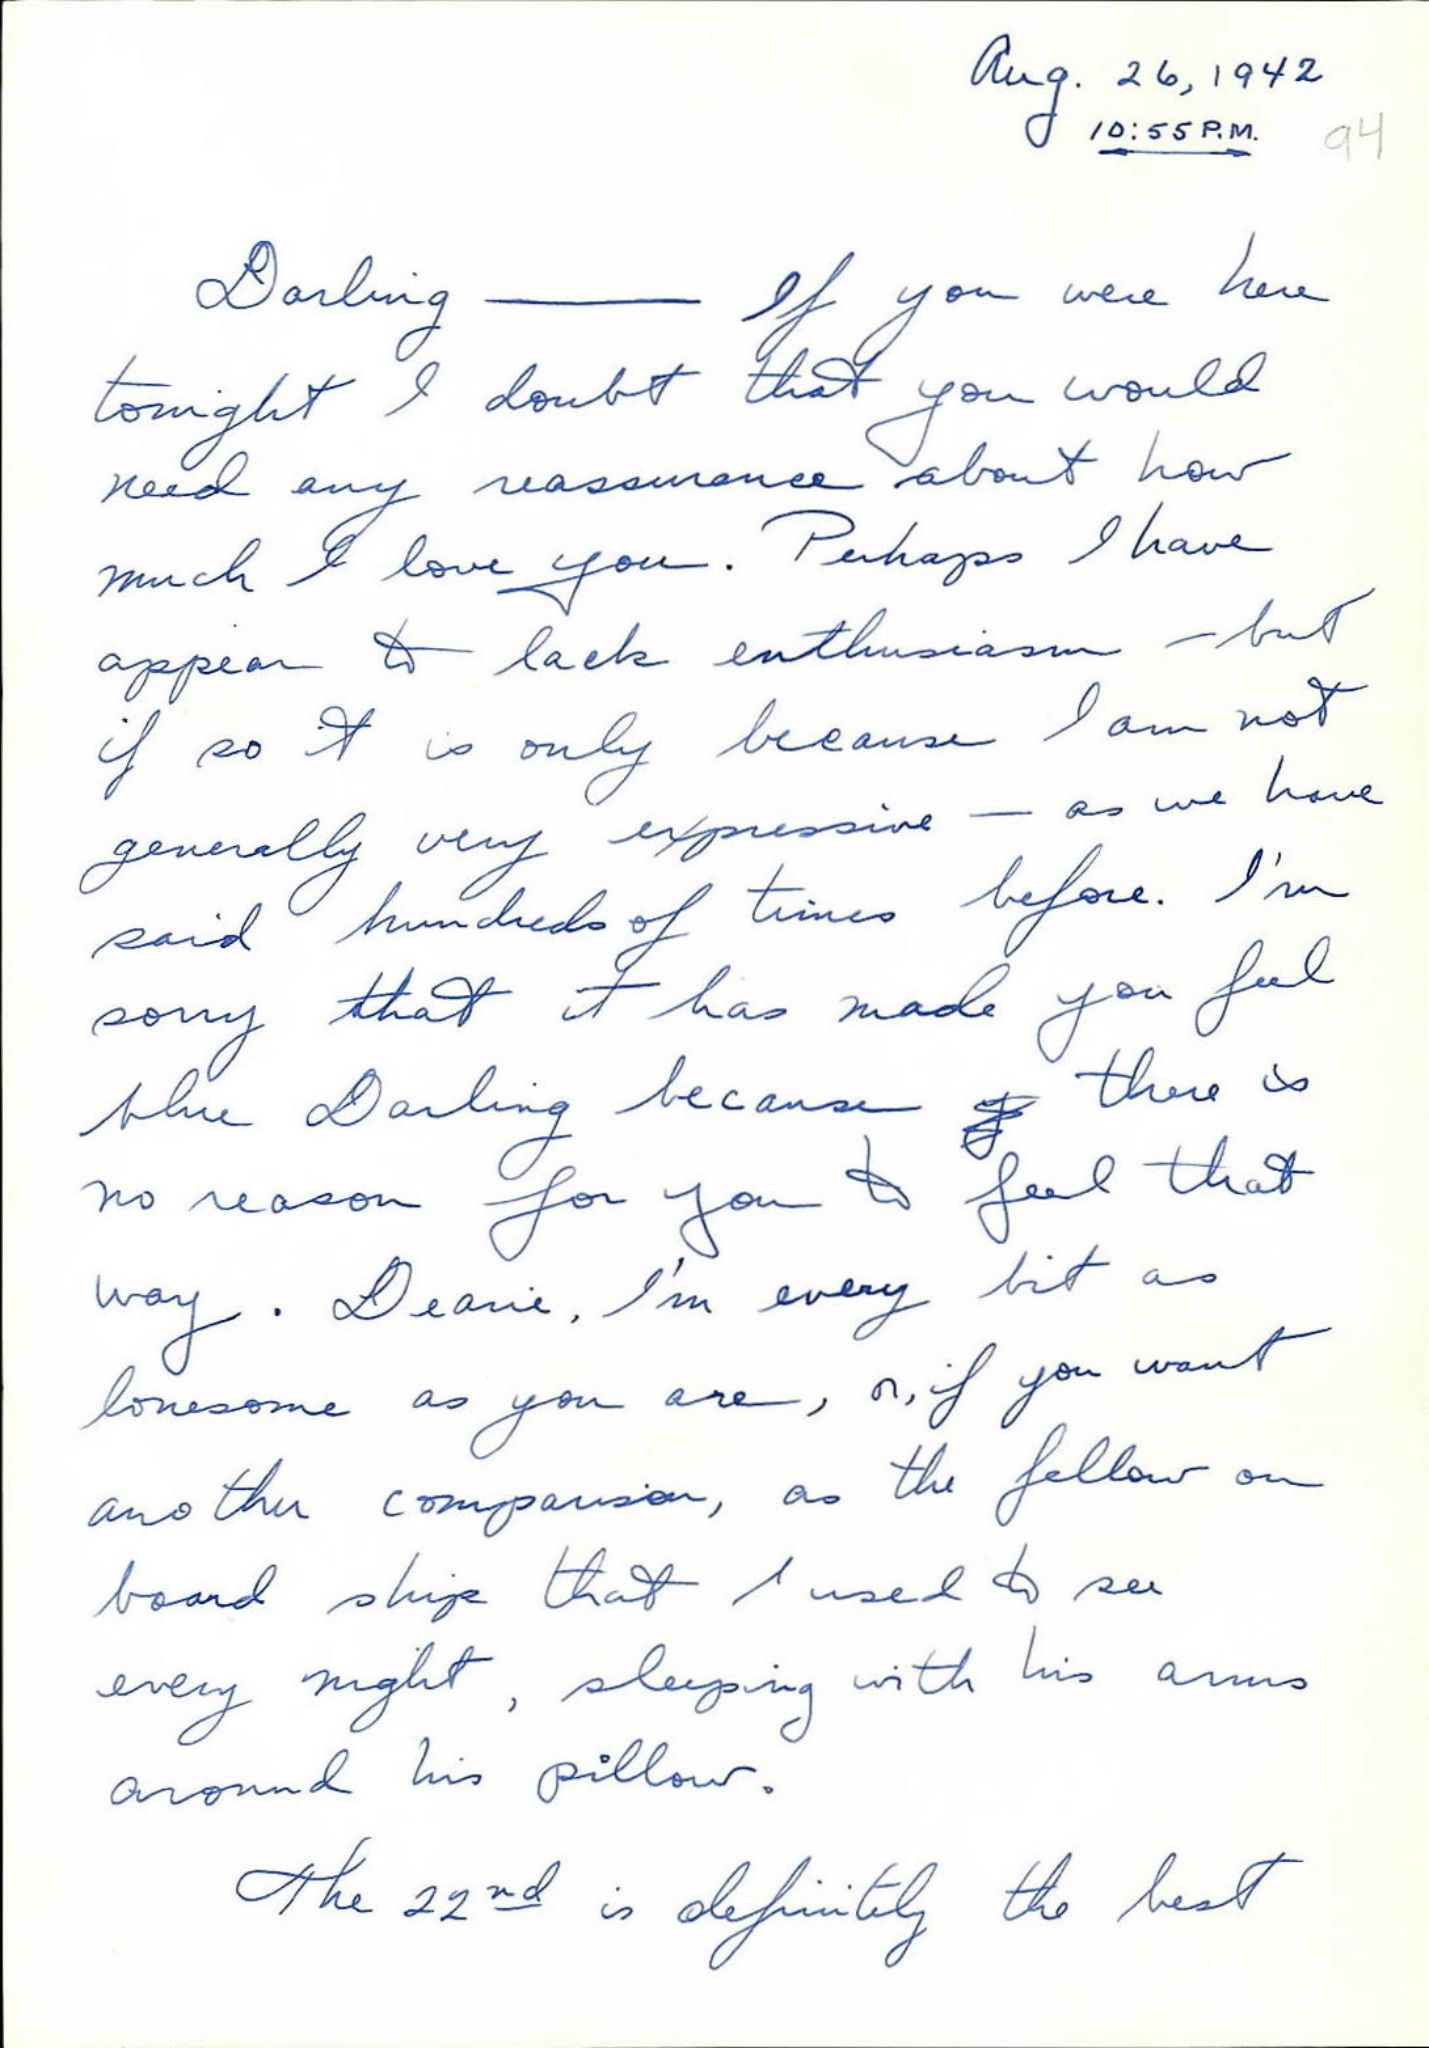 Aug. 26, 1942
10:55 P.M.
94
Darling —— If you were here
tonight I doubt that you would
need any reassurance about how
much I love you. Perhaps I have
appear to lack enthusiasm – but
if so it is only because I am not
generally very expressive – as we have
said hundreds of times before. I'm
sorry that it has made you feel
blue Darling because there is
no reason for you to feel that
way. Dearie, I'm every bit as
lonesome as you are, or, if you want
another comparison, as the fellow on
board ship that I used to see
every night, sleeping with his arms
around his pillow.
The 22nd is definitely the best